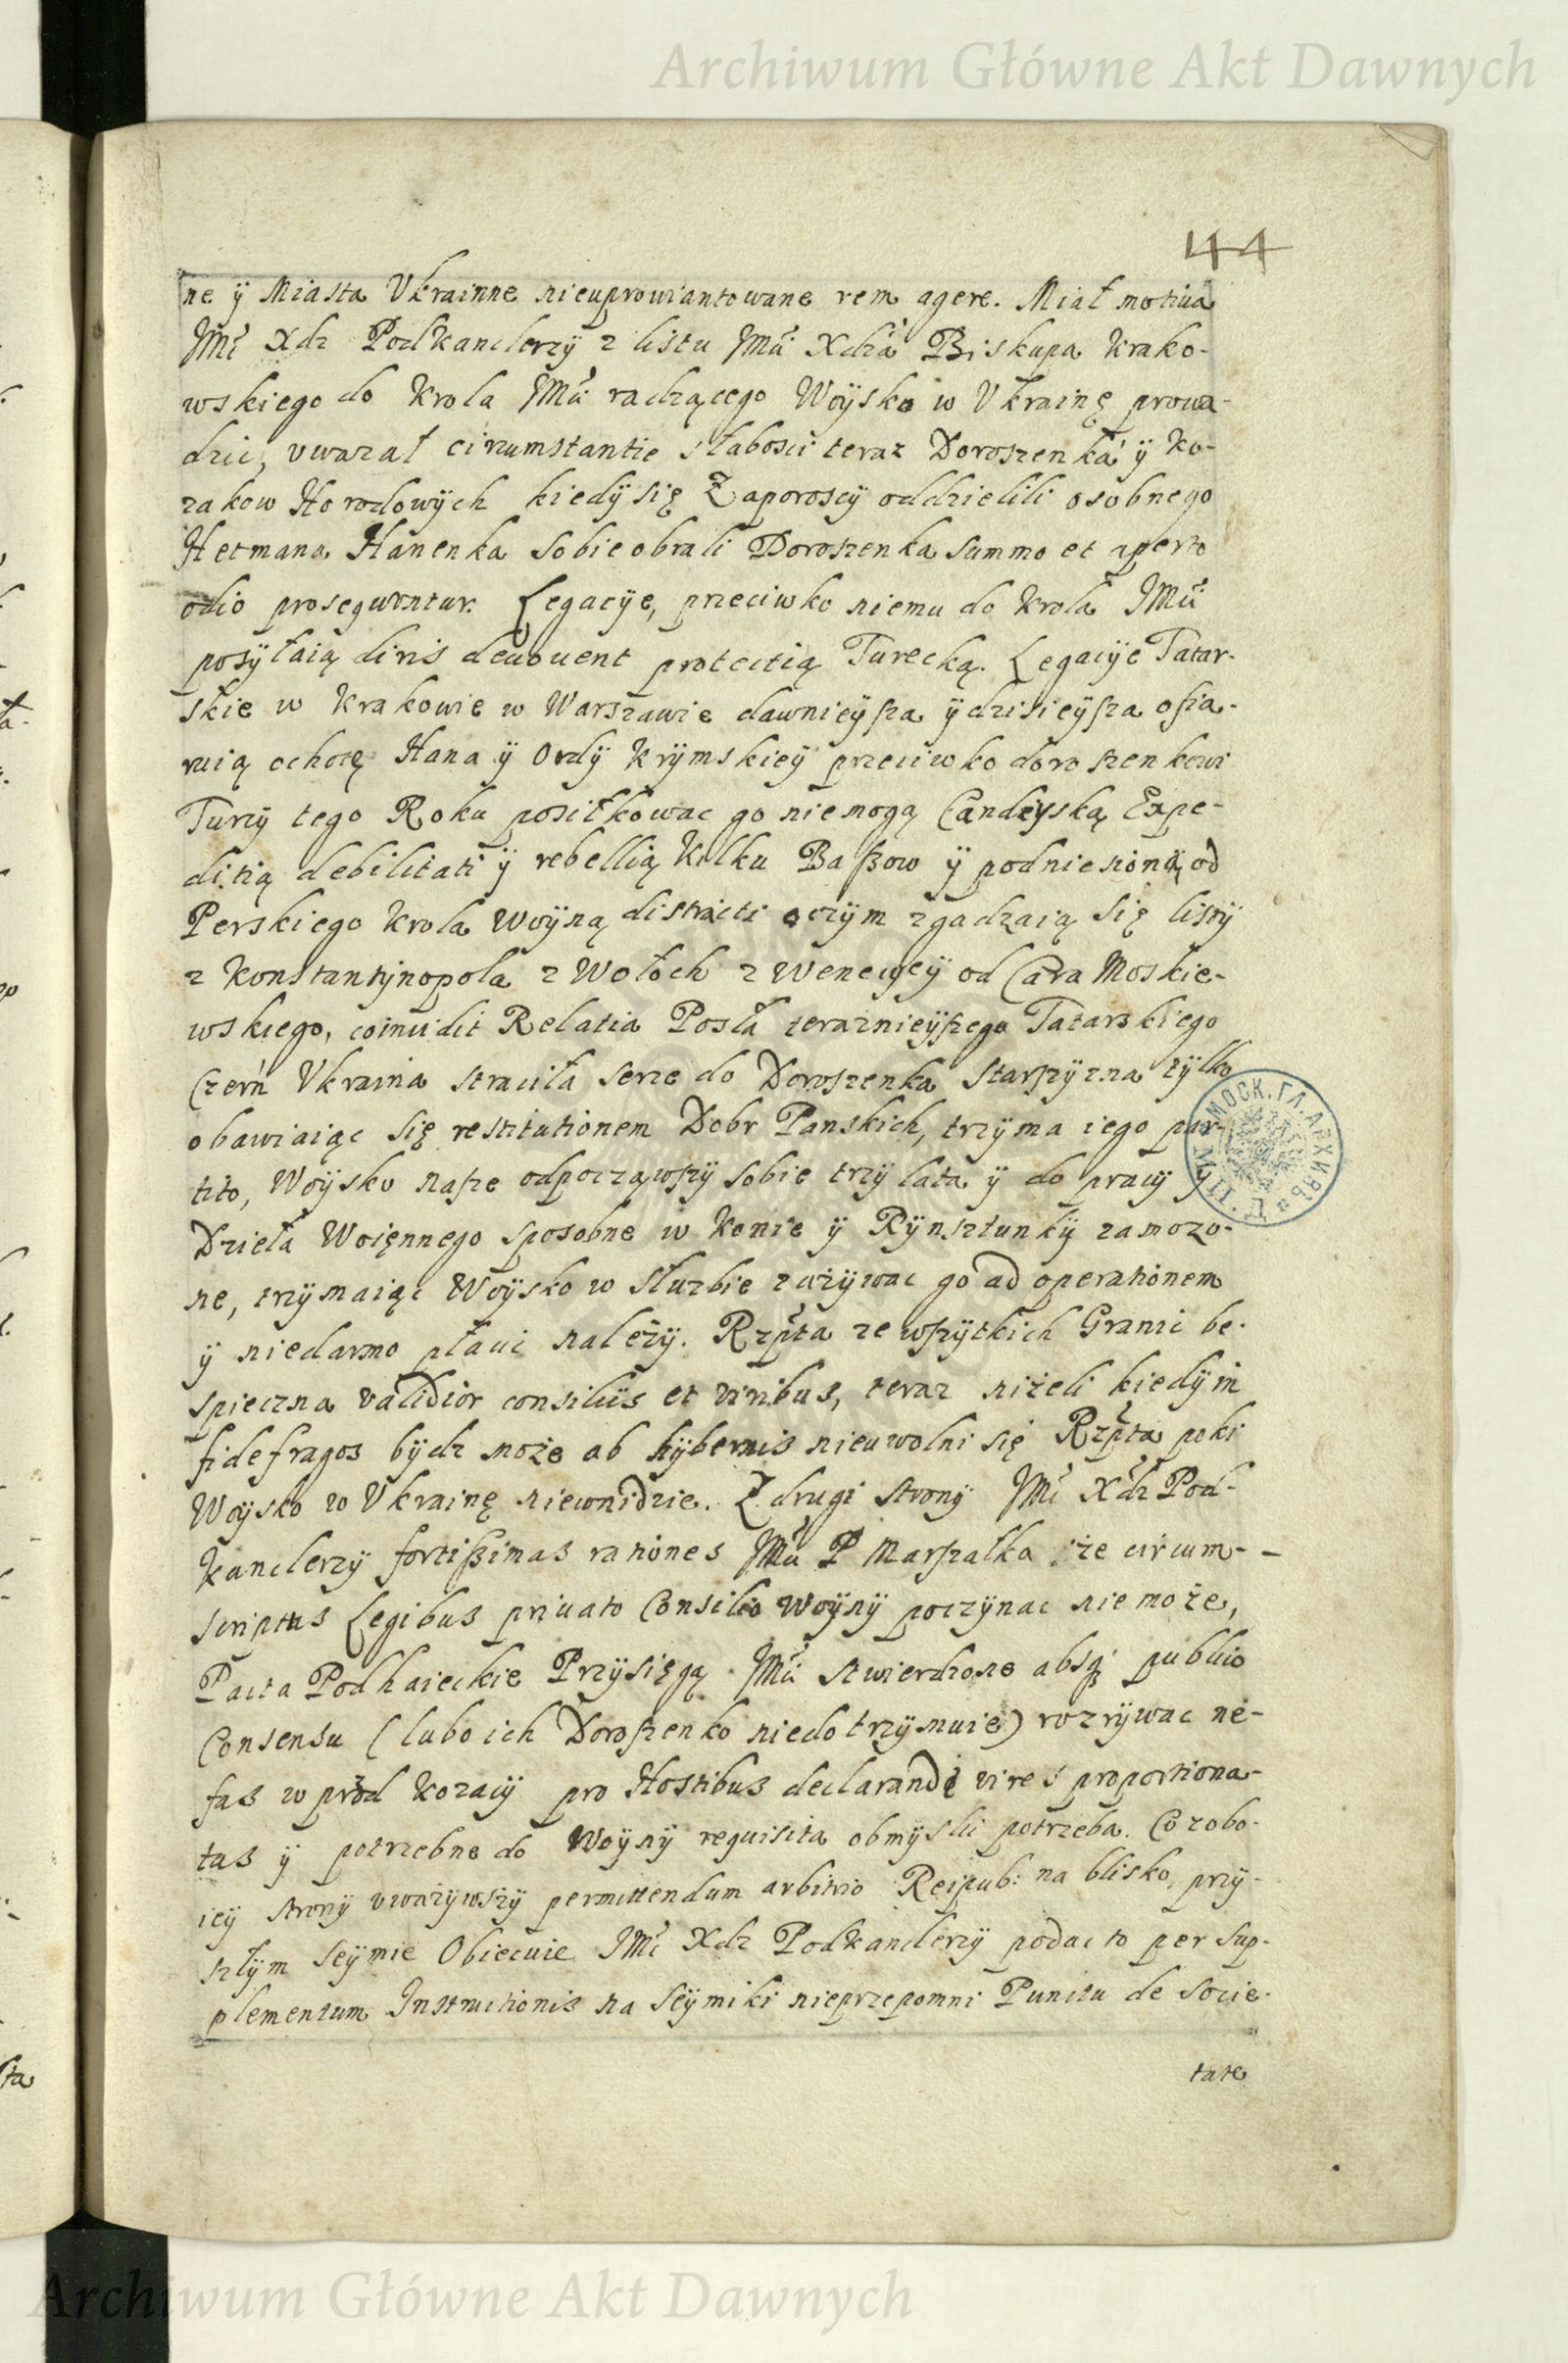 Archiwum Główne Akt Dawnych
44
ne ÿ Miasta Vkrainne nieuprowiantowane rem agere. Miał motiua
JMć Xdz Podkanclerzÿ z listu JMći Xdźa Biskupa Krako-
wskiego do Krola JMći radzącego Woÿsko w Vkrainę prowa-
dzic, vwazał circumstantie słabosci teraz Doroszenka ÿ Ko-
zakow Horodowÿch kiedÿ się Zaporoscÿ oddzielili osobnego
Hetmana Hanenka sobie obrali Doroszenka summo et aperto
odio prosequuntur. Legacÿe, przeciwko niemu do Krola JMći
posÿłaią diris deuouent protectią Turecką. Legacÿe Tatar-
skie w Krakowie w Warszawie dawnieÿsza ÿ dzisieÿsza ofia-
ruią ochotę Hana ÿ Ordÿ Krÿmskieÿ przeciwko doroszenkowi
Turcÿ tego Roku posiłkowac go niemogą Candÿską Expe-
ditią debilitati ÿ rebellią Kilku Baszow ÿ podniesioną od
Perskiego Krola Woÿną distracti oczÿm zgadzaią się listÿ
z Konstantÿnopola z Wołoch z Wenecÿeÿ od Cara Moskie-
wskiego, coincidit Relatia Posła teraznieÿszego Tatarskiego
Czerń Vkraina straciła serce do Doroszenka Starszÿzna tÿlko
obawiaiąc się restitutionem Dobr Panskich, trzÿma iego par-
tito, Woÿsko nasze odpocząwszÿ sobie trzÿ lata ÿ do pracÿ ÿ
Dzieła Woięnnego sposobne w Konie ÿ Rÿnsztunkÿ zamozo-
ne, trzÿmaiąc Woÿsko w służbie zażÿwac go ad operationem
ÿ niedarmo płacic należÿ. Rzpta ze wszÿtkich Granic be-
spieczna validior consiliis et viribus, teraz niżeli kiedÿ in
fidefragos bÿdz może ab hÿbernis nieuwolni się Rzpta poki
Woÿsko w Vkrainę niewnidzie. Z drugi stronÿ JMć Xdz Pod-
kanclerzÿ fortissimas rationes JMći P Marszałka że circum-
scriptus Legibus priuato Consilio Woÿnÿ poczÿnac nie może,
Pacta Podhaieckie Przÿsięgą JMći stwierdzone absq publico
Consensu (lubo ich Doroszenko niedotrzÿmuie) rozrÿwac ne-
fas wprźod Kozacÿ pro Hostibus declarandi vires proportiona-
tas ÿ potrzebne do Woÿnÿ requisita obmÿslic potrzeba. Co zobo-
ieÿ stronÿ vważÿwszÿ permittendum arbitrio Reipub: na blisko przÿ-
szłÿm Seÿmie Obiecuie JMć Xdz Podkanclerzÿ podac to per sup-
plementum Instructionis na Seÿmiki nieprzepomni Punctu de Socie-
tate
МОСК. ГЛ. АРХИВЪ
Archiwum Główne Akt Dawnych